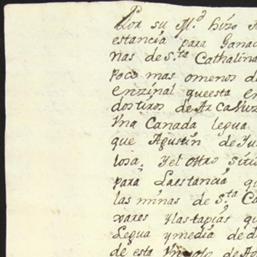 Por su M.d hizo
estancia para Gana
nas de S.ta Cathalina
Poco mas o menos d
enzinal questa en
dos tiros de Arcabuz
Vna Canada legua
que Agustin de
losa. Yel otro Sitio
para Laestancia q
las minas de S.ta Ca
xares Ylastapias qu
Legua ymedia de d
de esta